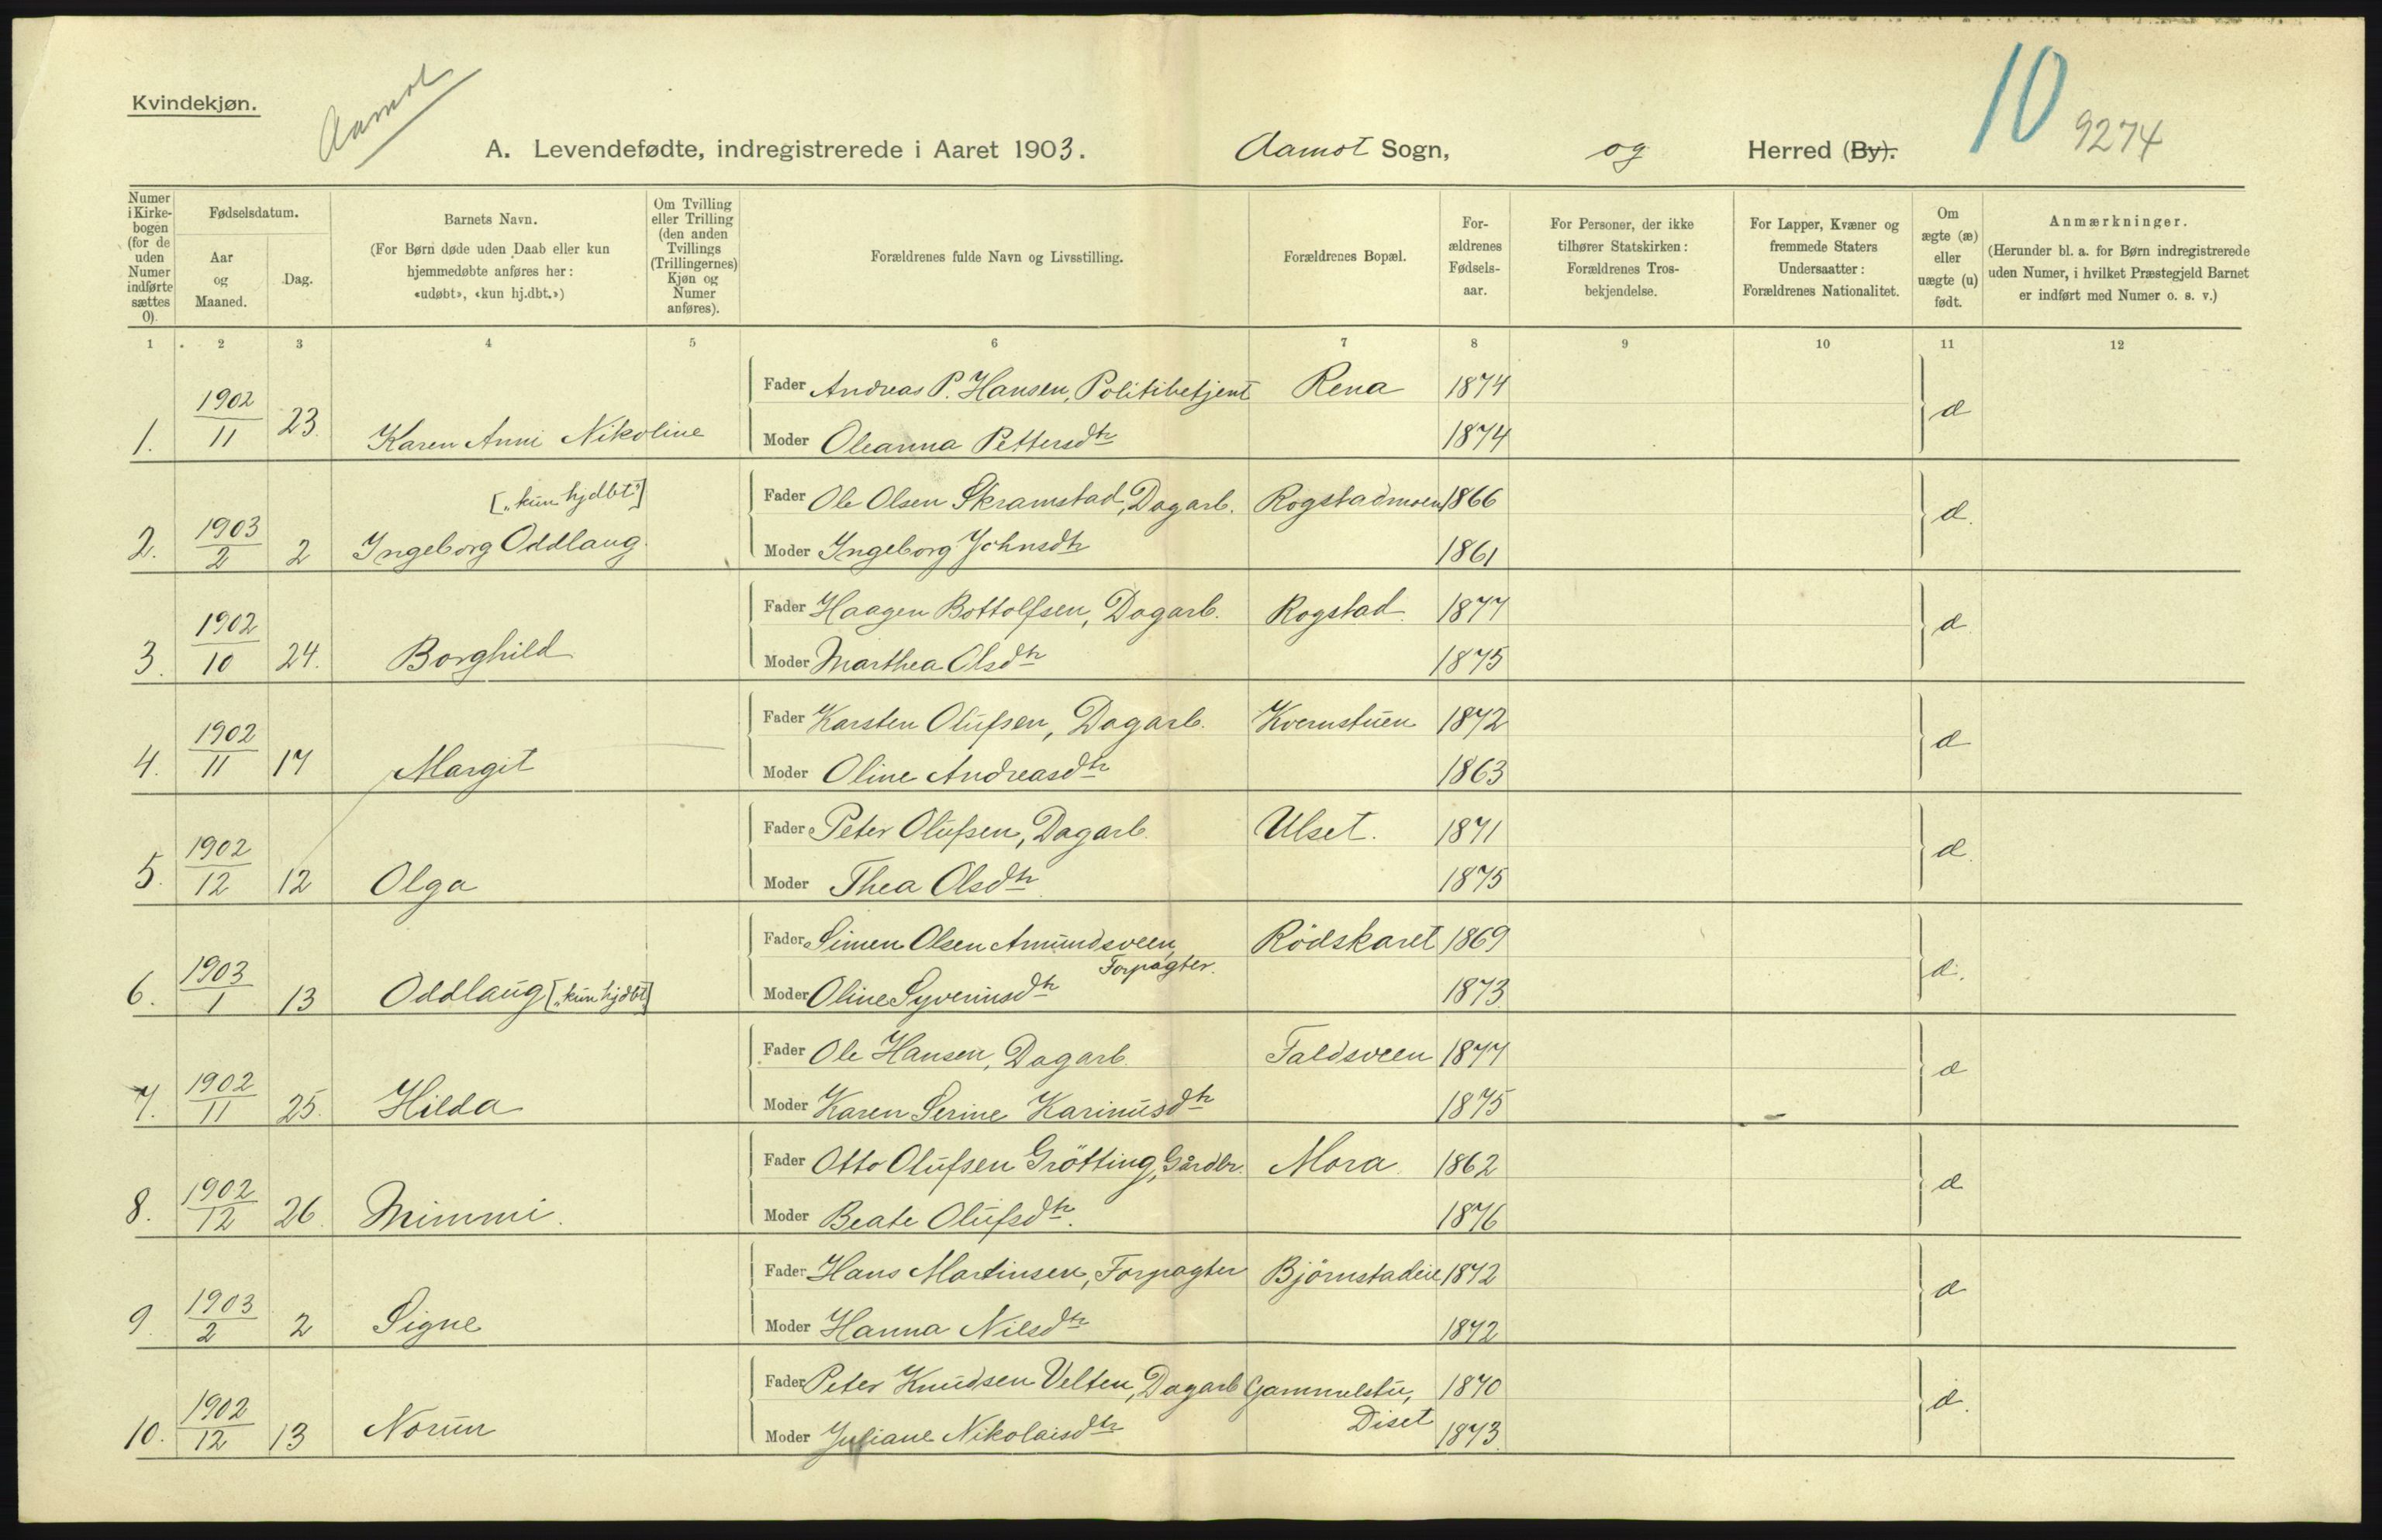 Kvindekjøn.
Aamot
10
9274
A. Levendefødte, indregistrerede i Aaret 1903. Aamot Sogn, og Herred (By).
Numer i Kirkebogen (for de uden Numer indførte sættes 0).
Fødselsdatum.
Aar og Maaned.
Dag.
Barnets Navn.
(For Børn døde uden Daab eller kun hjemmedøbte anføres her: «udøbt», «kun hj.dbt.»)
Om Tvilling eller Trilling (den anden Tvillings (Trillingernes) Kjøn og Numer anføres).
Forældrenes fulde Navn og Livsstilling.
Forældrenes Bopæl.
Forældrenes Fødselsaar.
For Personer, der ikke tilhører Statskirken: Forældrenes Trosbekjendelse.
For Lapper, Kvæner og fremmede Staters Undersaatter: Forældrenes Nationalitet.
Om ægte (æ) eller uægte (u) født.
Anmærkninger.
(Herunder bl. a. for Børn indregistrerede uden Numer, i hvilket Præstegjeld Barnet er indført med Numer o. s. v.)
1 2 3 4 5 6 7 8 9 10 11 12
Fader Andreas P. Hansen, Politibetjent Rena 1874
1. 1902/11 23. Karen Anni Nikoline æ
Moder Oleanna Pettersdtr 1874
["kun hjdbt"]
Fader Ole Olsen Skramstad, Dagarb. Rogstadmoen 1866
2. 1903/2 2 Ingeborg Oddlaug. æ.
Moder Ingeborg Johnsdtr 1861
Fader Haagen Bottolfsen, Dagarb. Rogstad. 1877
3. 1902/10 24. Borghild æ
Moder Marthea Olsdtr 1875
Fader Karsten Olufsen, Dagarb. Kvernstuen 1872
4. 1902/11 17 Margit æ
Moder Oline Andreasdtr 1863
Fader Peter Olufsen, Dagarb. Ulset. 1871
5. 1902/12 12 Olga æ
Moder Thea Olsdtr 1875
Fader Simen Olsen Amundsveen, Forpagter. Rödskaret 1869
6. 1903/1 13 Oddlaug ["kun hjdbt"] æ.
Moder Oline Syverinsdtr 1873.
Fader Ole Hansen, Dagarb. Faldsveen 1877
7. 1902/11 25. Hilda æ
Moder Karen Serine Karinusdtr 1875
Fader Otto Olufsen Grötting, Gårdbr. Mora. 1862
8. 1902/12 26. Mimmi. æ
Moder Beate Olufsdtr. 1876
Fader Hans Martinsen, Forpagter Björnstadeie 1872
9. 1903/2 2 Signe æ
Moder Hanna Nilsdtr 1872
Fader Peter Knudsen Velten, Dagarb Gammelstu, 1870
10. 1902/12 13 Norun Diset æ.
Moder Juliane Nikolaisdtr 1873.